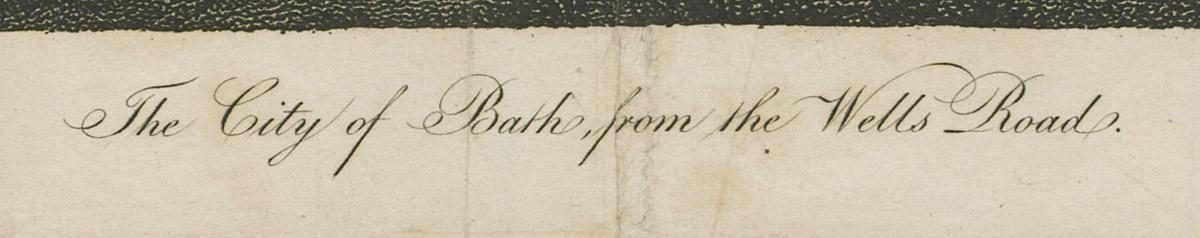 The City of Bath, from the Wells Road.